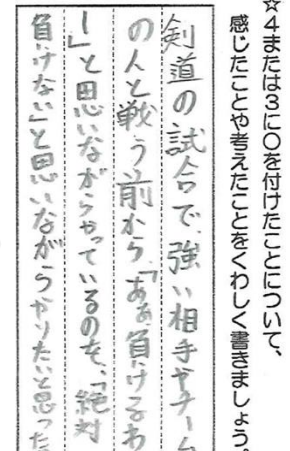 ☆４または３に○を付けたことについて、
感じたことや考えたことをくわしく書きましょう。
剣道の試合で、強い相手やチーム
の人と戦う前から、「あぁ、負けるわ
ー」と思いながらやっているのを、「絶対
負けない」と思いながらやりたいと思った